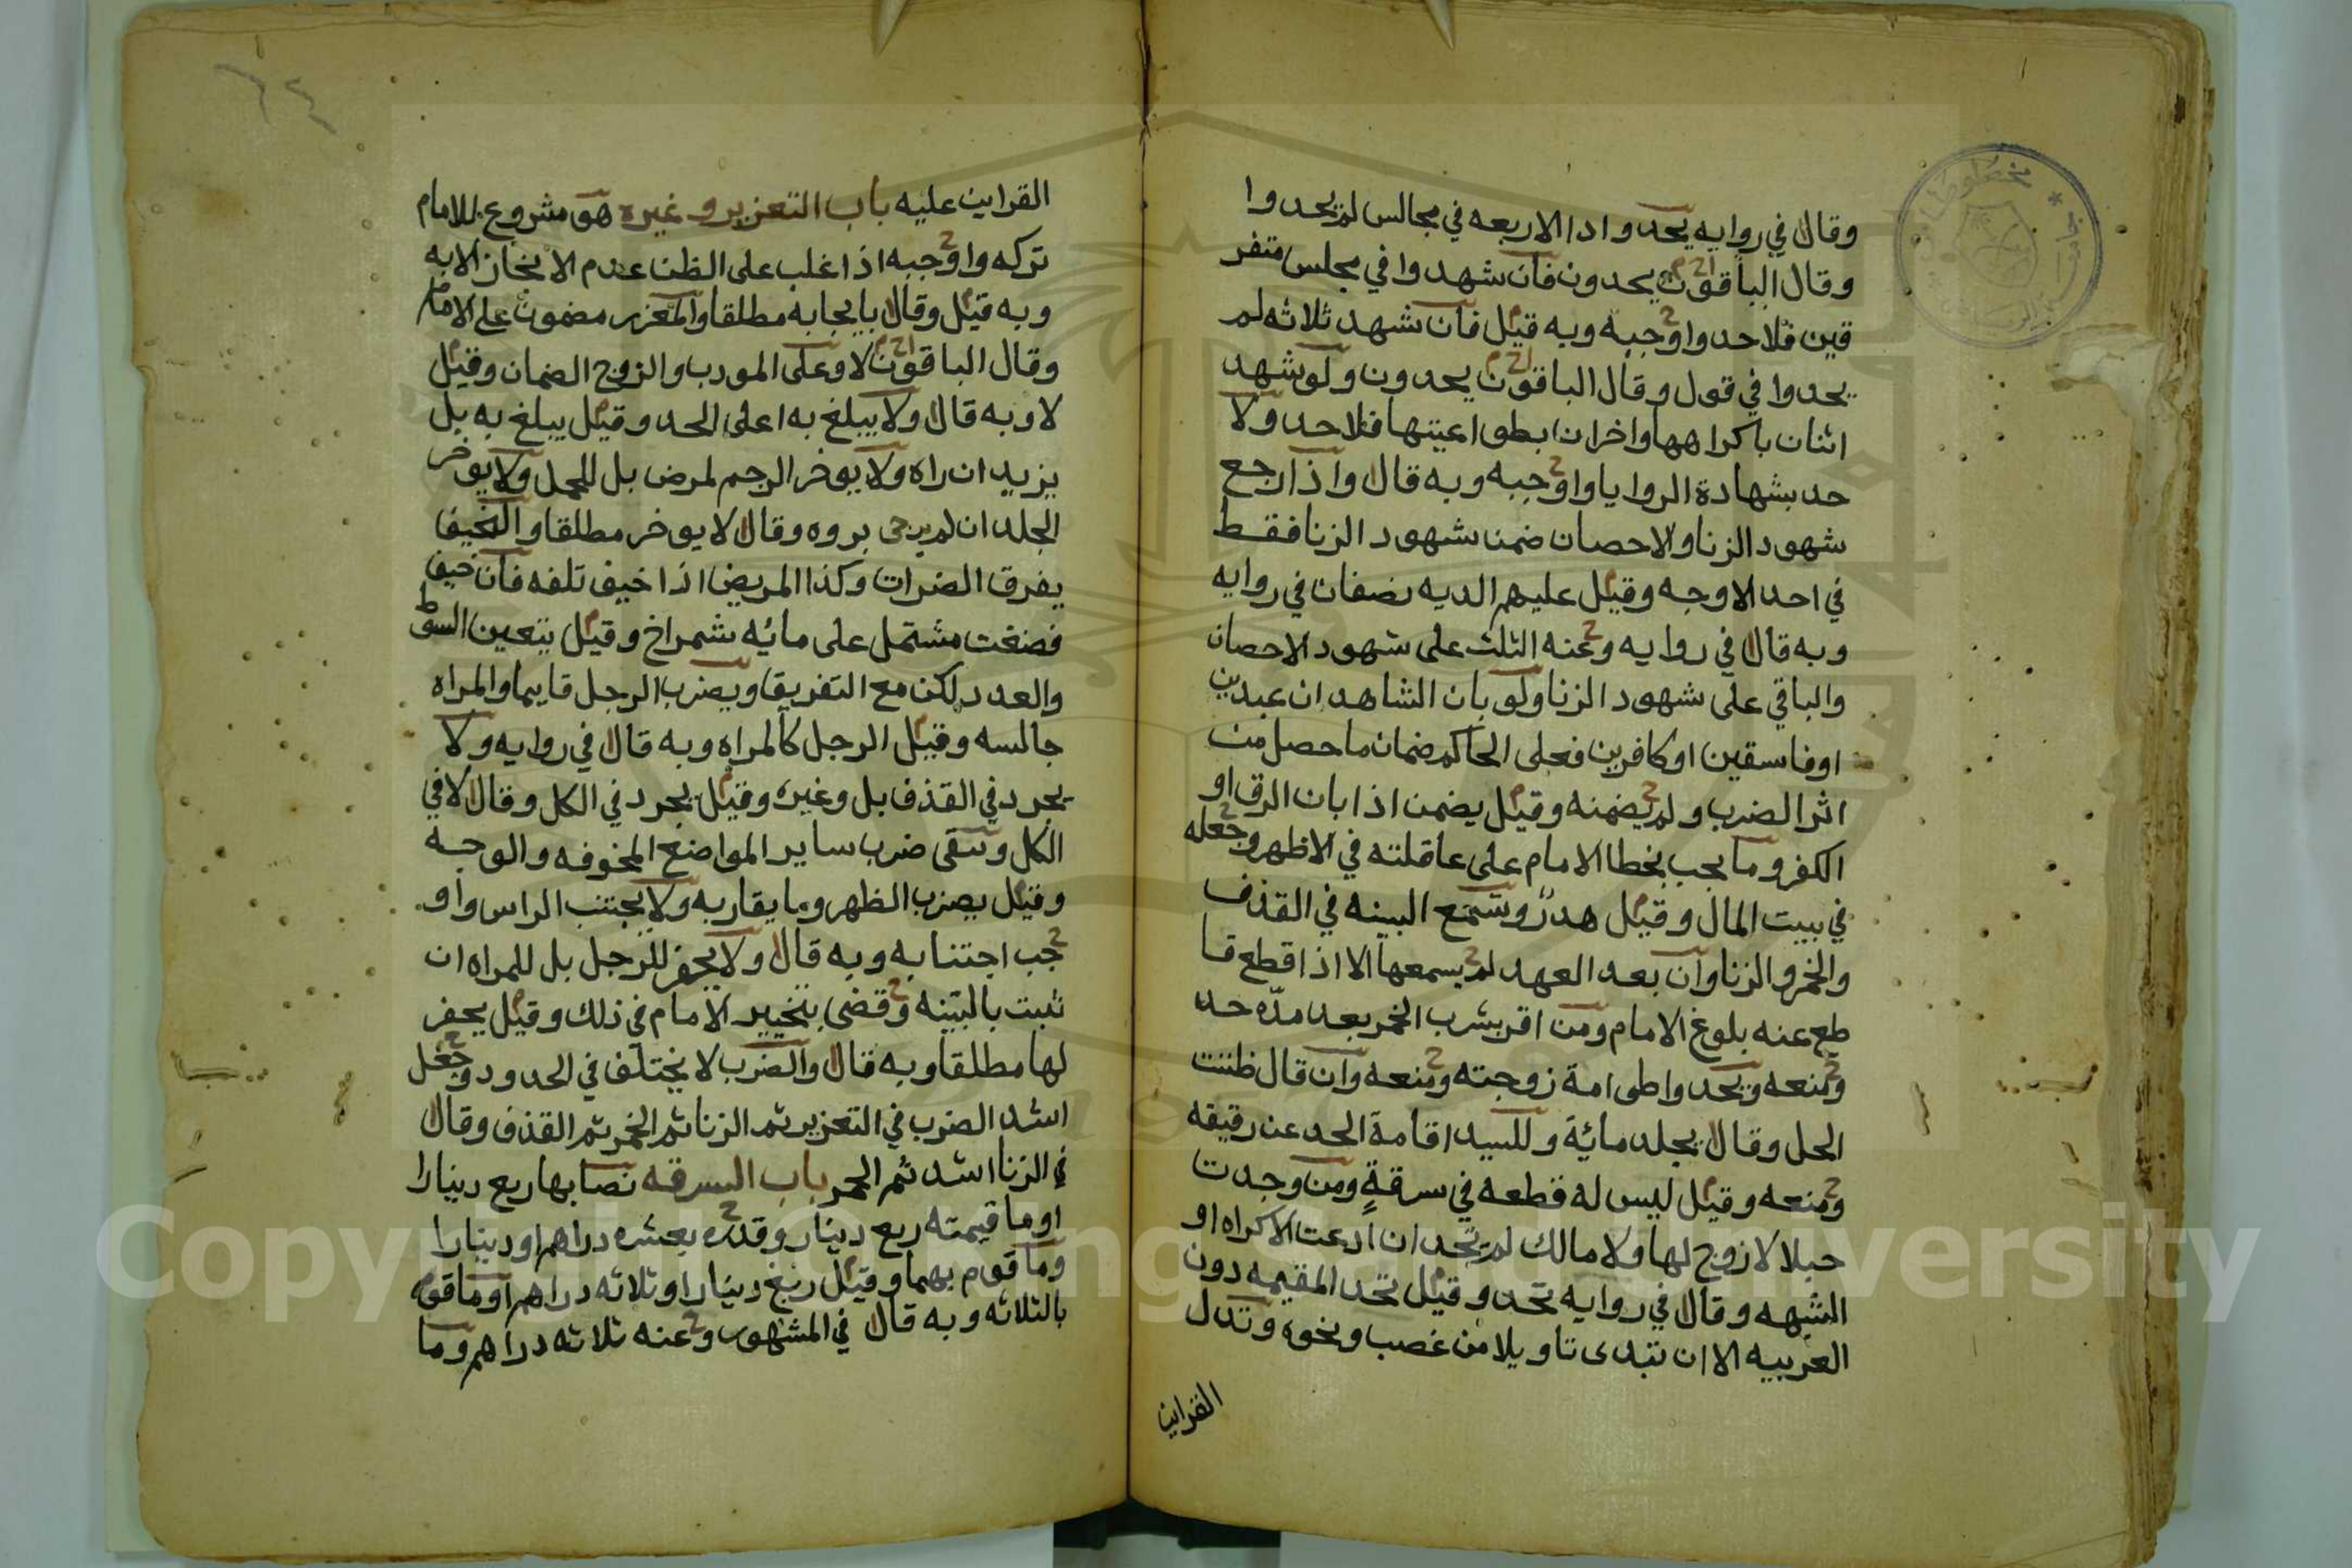 وقال في روايه يحدوا اذا الاربعه في مجالس لم يحدوا
وقال الباقون يحدون فان شهدوا في مجلس متفر
قين فلا حد واوجبه وبه قيل فان شهد ثلاثه لم
يحدوا في قول وقال الباقون يحدون ولو شهد
اثنان باكراهها واخران بطواعيتها فلا حد ولا
حد بشهادة الزوايا واوجبه وبه قال واذا رجع
شهود الزنا والاحصان ضمن شهود الزنا فقط
في احد الاوجه وقيل عليهم الديه نصفان في روايه
وبه قال في روايه وعنه الثلث على شهود الاحصان
والباقي على شهود الزنا ولو بان الشاهدان عبدين
او فاسقين او كافرين فعلى الحاكم ضمان ما حصل من
اثر الضرب ولم يضمنه وقيل يضمن اذا بان الرق او
الكفر وما يجب بخطا الامام على عاقلته في الاظهر وجعله
في بيت المال وقيل هدرٌ وتسمع البينه في القذف
والخمر والزنا وان بعد العهد لم يسمعها الا اذا قطع قا
طع عنه بلوغ الامام ومن اقر بشرب الخمر بعد مدّه حد
ومنعه ويحد واطى امة زوجته ومنعه وان قال ظننت
الحل وقال يجلد مائة وللسيد اقامة الحد عن رقيقه
ومنعه وقيل ليس له قطعه في سرقةٍ ومن وجدت
حبلا لا زوج لها ولا مالك لم تحد ان ادعت الاكراه او
الشبهه وقال في روايه تحد وقيل تحد المقيمه دون
الغريبه الا ان تبدى تاويلا من غصب ونحوه وتدل
القراين
القراين عليه باب التعزير وغيره هو مشروع للامام
تركه واوجبه اذا غلب على الظن عدم الانجاز الا به
وبه قيل وقال بايجابه مطلقا والمعزر مضمون على الامام
وقال الباقون لا وعلى المودب والزوج الضمان وقيل
لا وبه قال ولا يبلغ به اعلى الحد وقيل يبلغ به بل
يزيد ان راه ولا يوخر الرجم لمرض بل للحمل ولا يوخر
الجلد ان لم يرجى بروه وقال لا يوخر مطلقا والنحيف
يفرق الضرات وكذا المريض اذا خيف تلفه فان خيف
فضغت مشتمل على مائه شمراخ وقيل يتعين السوط
والعدد لكن مع التفريق ويضرب الرجل قايما والمراه
جالسه وقيل الرجل كالمراه وبه قال في روايه ولا
يجرد في القذف بل وغيره وقيل يجرد في الكل وقال لا في
الكل وتتقى ضرب ساير المواضع المخوفه والوجه
وقيل يضرب الظهر وما يقاربه ولا يجتنب الراس واو
جب اجتنابه وبه قال ولا يحفر للرجل بل للمراه ان
ثبت بالبيّنه وقضى بتخيير الامام في ذلك وقيل يحفر
لها مطلقا وبه قال والضرب لا يختلف في الحدود وجعل
اشد الضرب في التعزير ثم الزنا ثم الخمر ثم القذف وقال
في الزنا اشد ثم الخمر باب السرقه نصابها ربع دينارا
او ما قيمته ربع دينار وقدره بعشره دراهم او دينارا
وما قوم بهما وقيل ربع دينارا او ثلاثه دراهم او ما قوم
بالثلاثه وبه قال في المشهور وعنه ثلاثه دراهم وما
Copyright © King Saud University